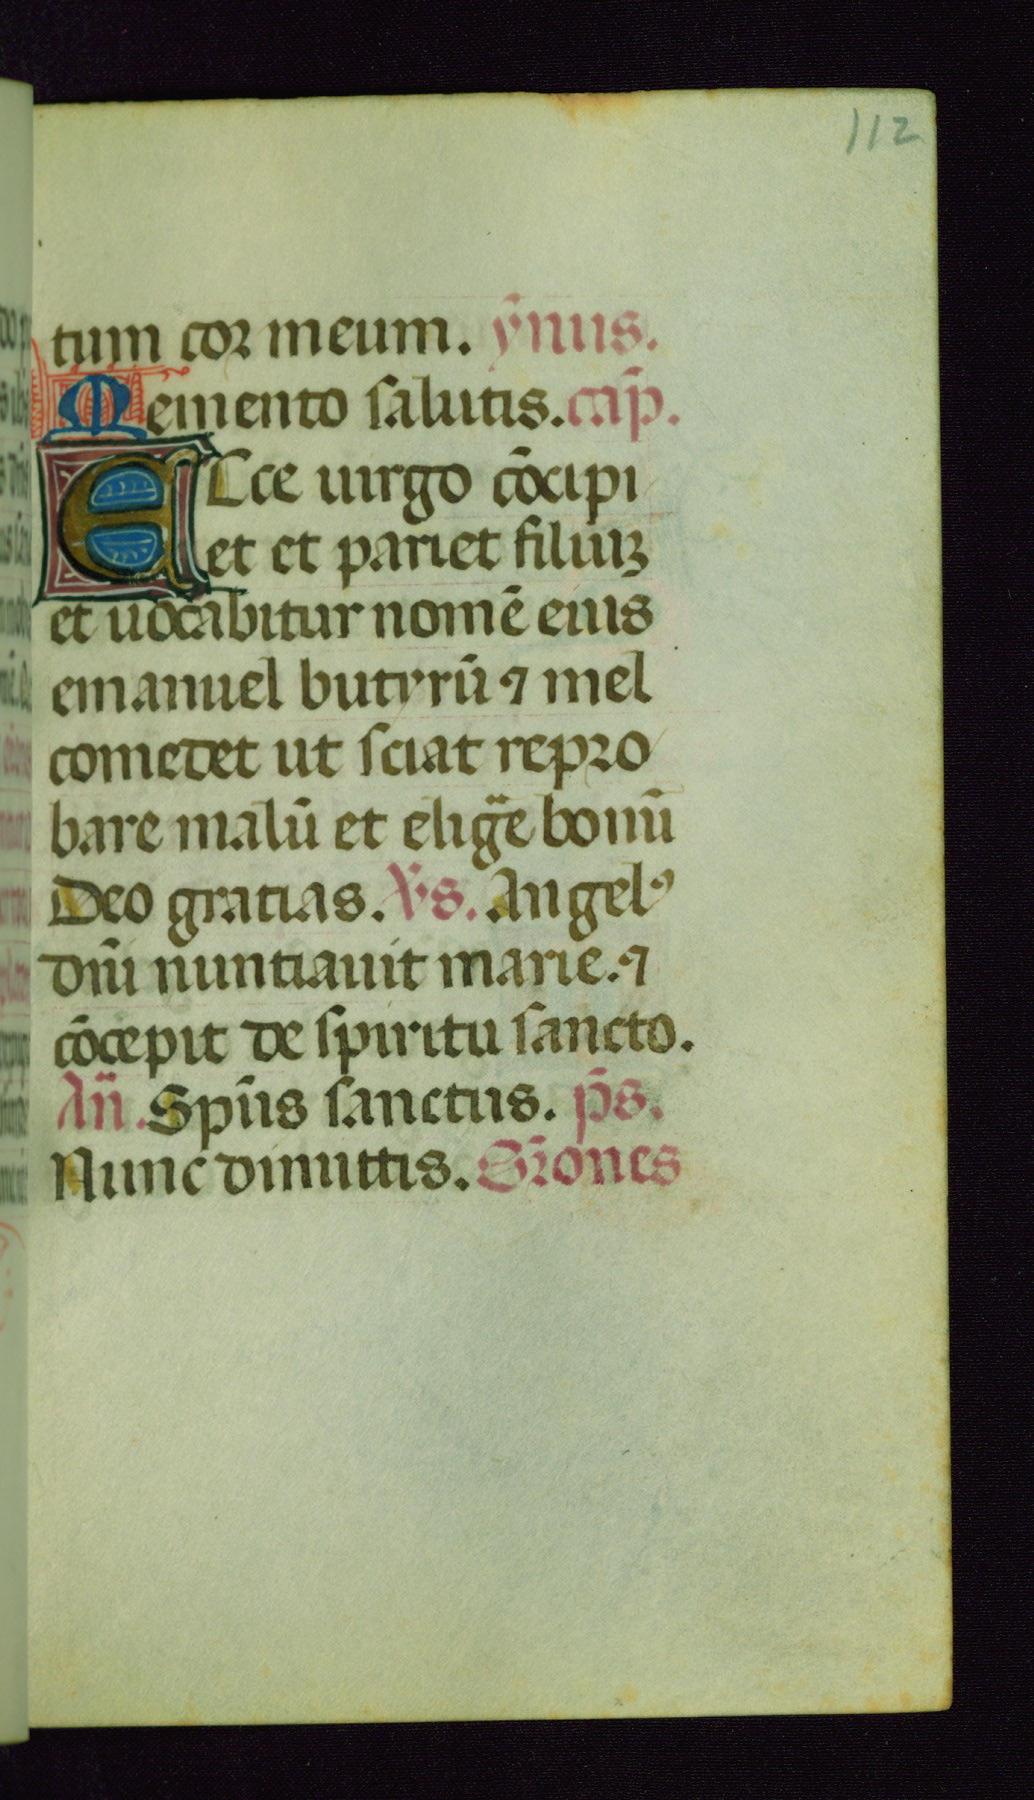 112
tum cor meum. ȳnus.
Memento salutis. cap̄.
Ecce uirgo cōcipi
et et pariet filiuꝫ
et uocabitur nomē eius
emanuel butyrū ⁊ mel
comedet ut sciat repro
bare malū et elig̃e bonū
Deo gratias. Vs̄. Angelꝰ
dñi nuntiauit marie. ⁊
cōcepit de spiritu sancto.
Añ. Spūs sanctus. p̄s.
Nunc dimittis. Sr̄ones